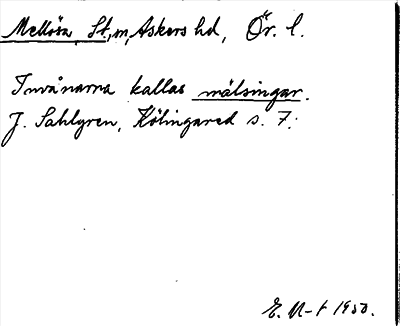 Mellösa, St., m, Askers hd, Ör. l.
Invånarna kallas mälsingar.
J. Sahlgren, Kölingared s. 7.
E. N-t 1950.